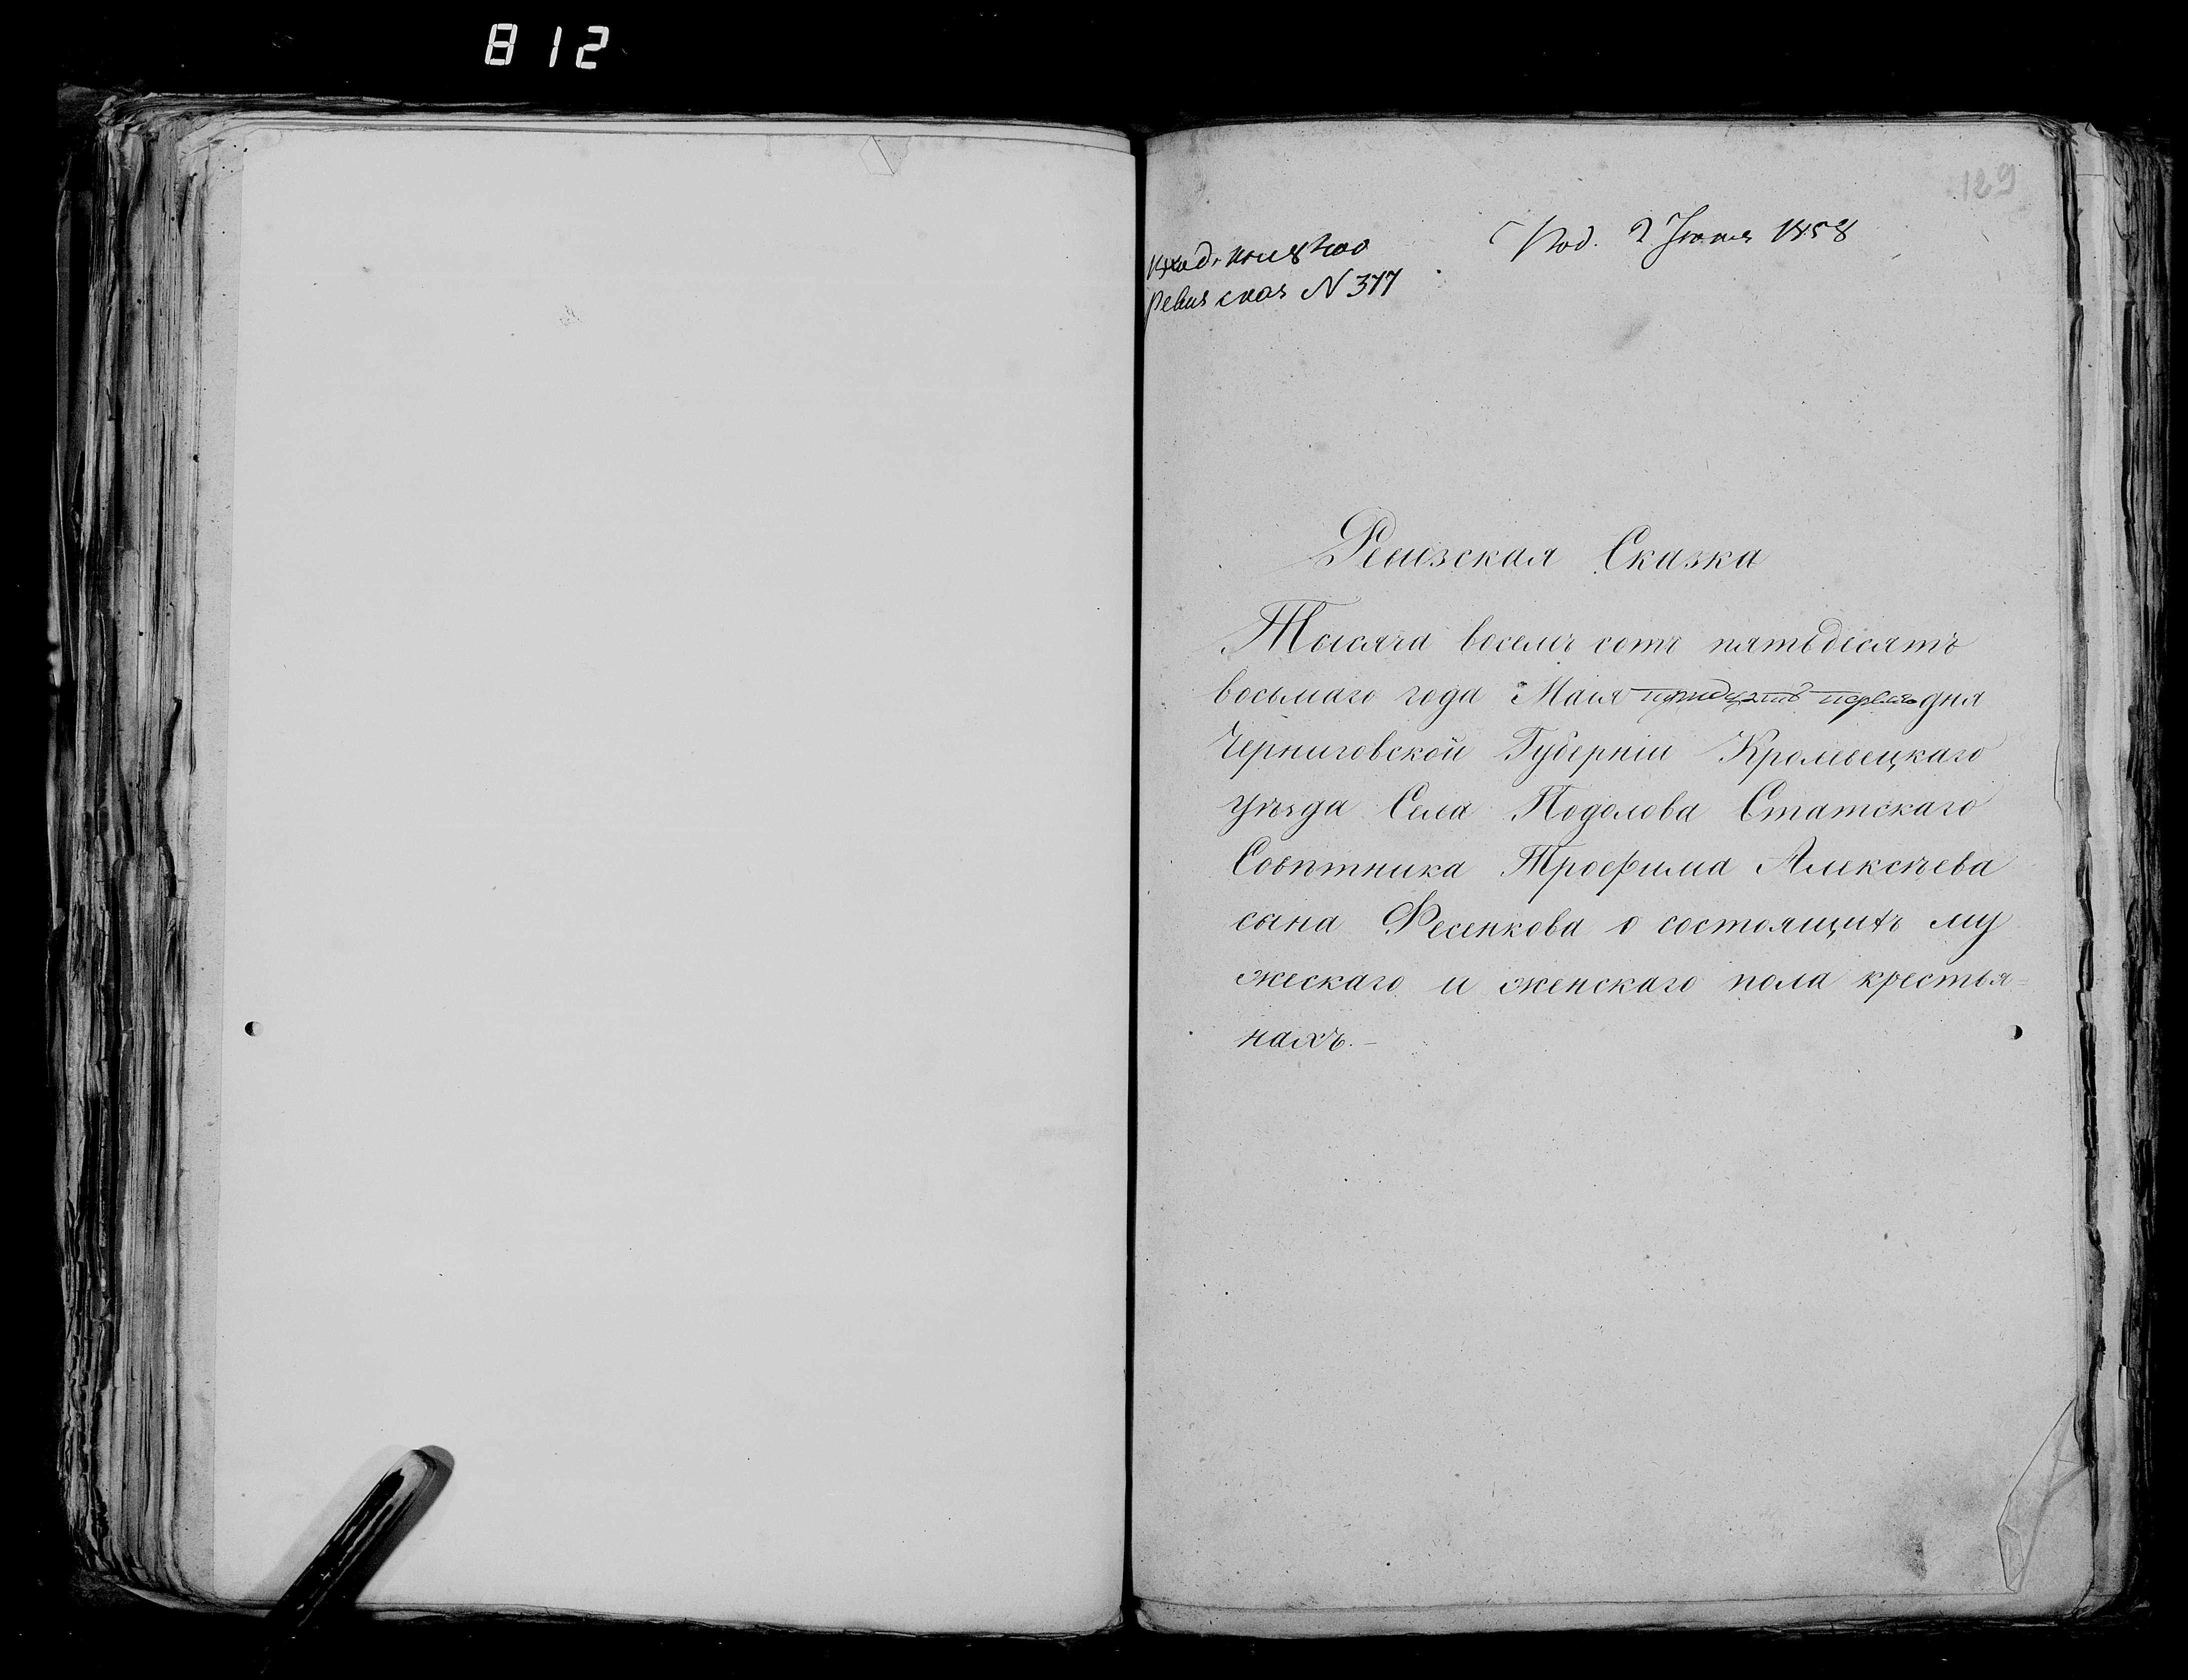 812
129
Под. 2 Іюня 1858
ревиз сказ N 377
Ревизская Сказка
Тысяча восемъ сотъ пятьдесятъ
восьмаго года Маія тридцать перваго дня
Черниговской Губерніи Кролевецкаго
уѣзда Села Подолова Статскаго
Совѣтника Трофима Алексѣева
сына Фесенкова о состоящихъ му
жескаго и женскаго пола крестья=
нахъ.—